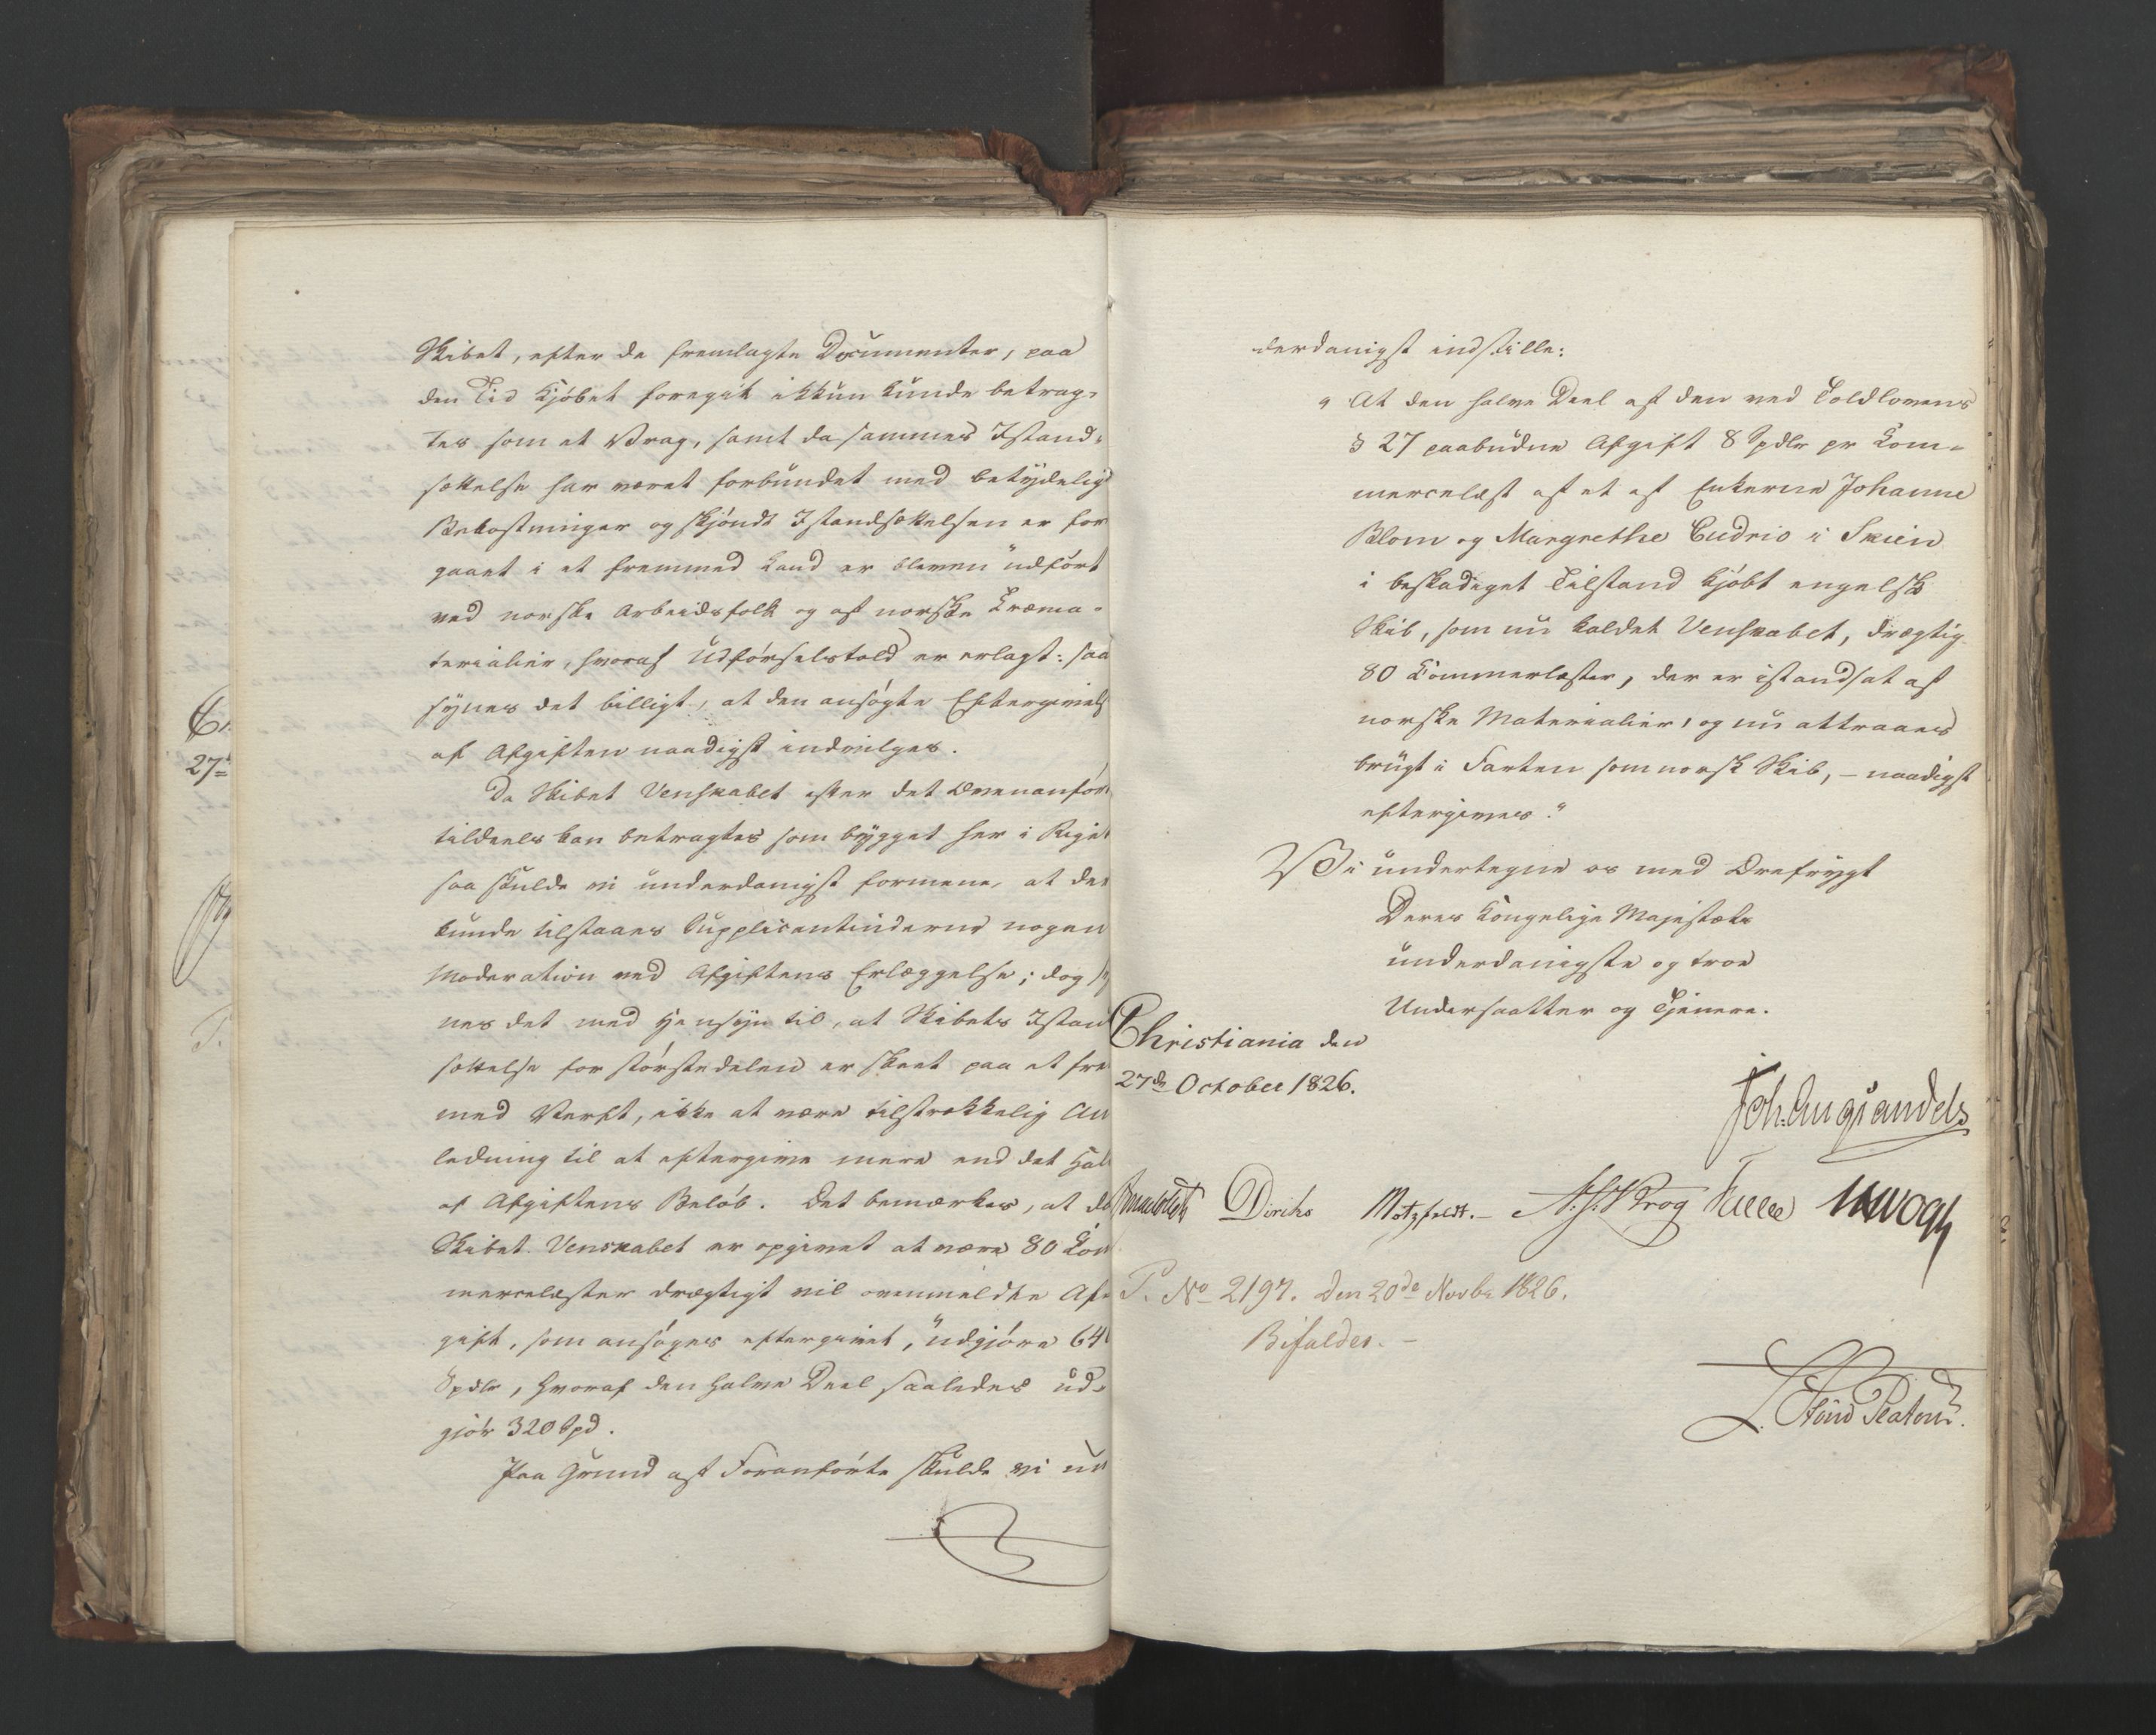 Skibet, efter de fremlagte Documenter, paa
den Tid Kjøbet foregik ikkun kunde betrag-
tes som et Vrag, samt da sammes Istand-
sættelse har været forbundet med betydelig
Bekostninger og skjøndt Istandsættelsen er for
gaaet i et fremmed Land er bleven udført
ved norske Arbeidsfolk og af norske Træma-
terialier, hvoraf Udførselstold er erlagt: saa
synes det billigt, at den ansøgte Eftergivels
af Afgiften naadigst indvilges.
Da Skibet Venskabet efter det Ovenanfør
tildeels kan betragtes som bygget her i Riget
saa skulde vi underdanigst formene, at der
kunde tilstaaes Supplicantinderne nogen
Moderation ved Afgiftens Erlæggelse; dog sy
nes det med Hensyn til, at Skibets Istand
sættelse for størstedelen er skeet paa et frem
med Verft, ikke at være tilstrækkelig An
ledning til at eftergive mere end det Hal
af Afgiftens Beløb. Det bemærkes, at da
Skibet Venskabet er opgivet at være 80 Com
mercelæster drægtigt vil ovenmeldte Af-
gift, som ansøges eftergivet, udgjøre 640
Spdlr, hvoraf den halve Deel saaledes ud-
gjør 320 Spd.
Paa Grund af Foranførte skulde vi un
derdanigst indstille:
"At den halve Deel af den ved Toldlovens
§ 27 paabudne Afgift 8 Spdlr pr Com-
mercelæst af et af Enkerne Johanne
Blom og Margrethe Cudrio i Skien
i beskadiget Tilstand kjøbt engelsk
Skib, som nu kaldet Venskabet, drægtig
80 Commerlæster, der er istandsat af
norske Materialier, og nu attraaes
brugt i Farten som norsk Skib, – naadigst
eftergives."
Vi undertegne os med Ærefrygt
Deres Kongelige Majestæts
underdanigste og troe
Undersaatter og Tjenere.
Christiania den
27de October 1826.
Joh. Aug. Sandels
Diriks Motzfeldt. – N. J. Krog
P. No 2197. Den 20de Novbr 1826.
Bifaldes. –